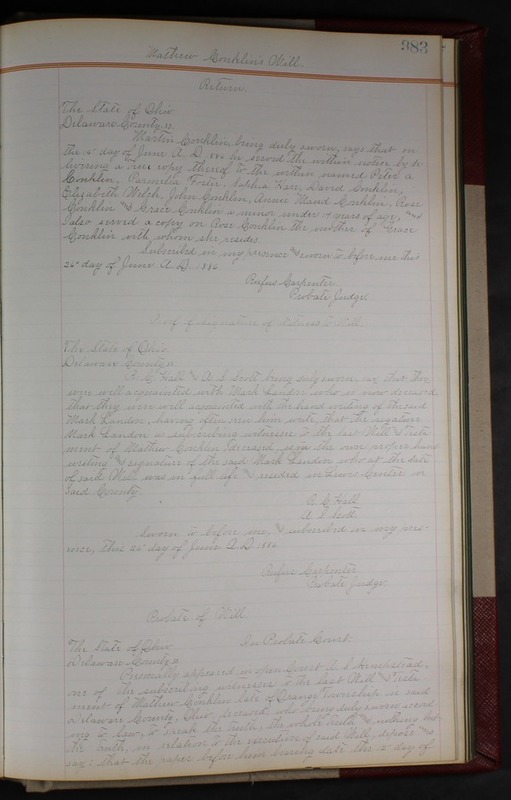 983
Mathew Conklin's Will.
Return.
The State of Ohio
Delaware County ss.
Martin Conklin being duly sworn, says that on
the 12" day of June A. D. 1886 he served the within notice by de-
livering a true copy thereof to the within named Peter
Conklin, Parmelia Foster, Sophia Karr, David Conklin,
Elizabeth Welch, John Conklin, Annie Maud Conklin, Rose
Conklin and Grace Conklin a minor under years of age, and
I also served a copy on Rose Conklin the mother of Grace
Conklin with whom she resides.
Subscribed in my presence and sworn to before me this
25" day of June A.D. 1886
Rufus Carpenter
Probate Judge.
Proof of signature of Witness to Will.
The State of Ohio
Delaware County ss
R. C. Hall and A. S. Scott being duly sworn, say that they
were well acquainted with Mark Landon who is now deceased,
that they were well acquainted with the hand writing of the said
Mark Landon, having often seen him write, that the signature
Mark Landon as subscribing witness to the last Will and Testa
ment of Mathew Conklin deceased, is in the own proper hand
writing and signature of the said Mark Landon who at the date
of said Will was in full life and resided in Lewis Center in
said County.
R. C. Hall
A. S. Scott
Sworn to before me, and subscribed in my pres-
ence, this 25" day of June A.D. 1886
Rufus Carpenter
Probate Judge.
Probate of Will.
The State of Ohio In Probate Court.
Delaware County ss
Personally appeared in open Court A. S. Hempstead,
one of the subscribing witnesses to the last Will and Testa
ment of Mathew Conklin late of Orange Township in said
Delaware County, Ohio, deceased, who being duly sworn accord
ing to law, to speak the truth, the whole truth and nothing but
the truth, in relation to the execution of said Will, depose and
say: that the paper before him bearing date the 12" day of